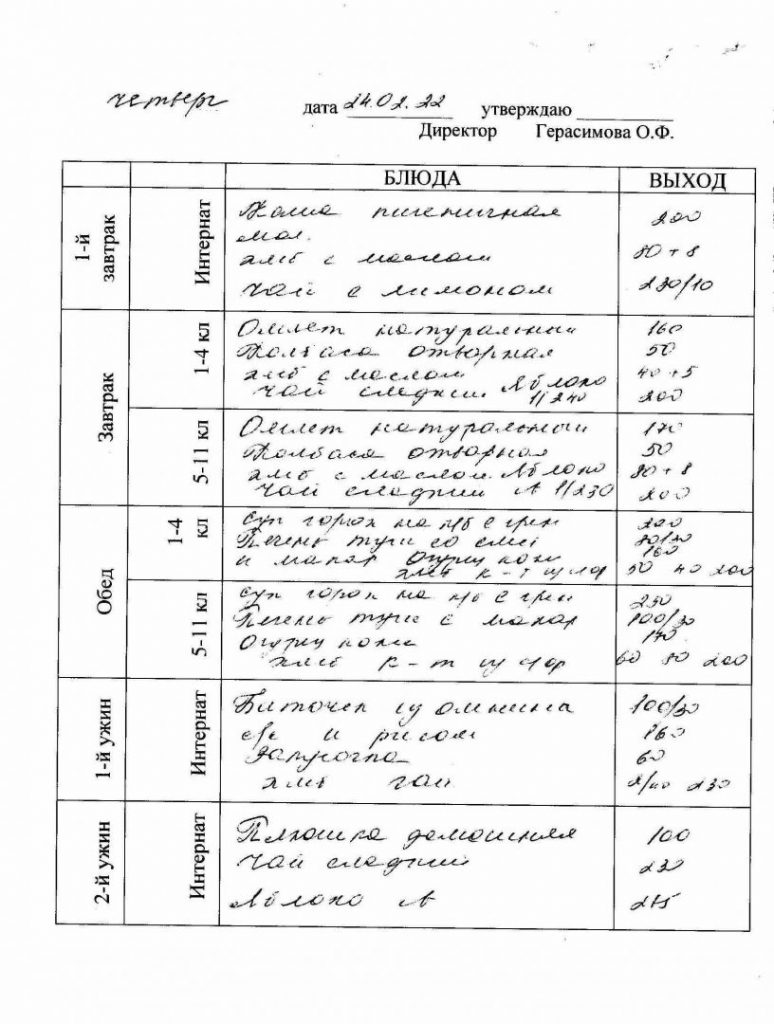 четверг
дата 24.02.22 утверждаю
Директор Герасимова О.Ф.
БЛЮДА ВЫХОД
1-й завтрак
Интернат
Каша пшеничная 200
мол.
хлеб с маслом 80+8
чай с лимоном 230/10
Завтрак
1-4 кл
Омлет натуральный 160
Колбаса отворная 50
хлеб с маслом 40+5
чай сладкий Яблоко 200
1/240
5-11 кл
Омлет натуральный 170
Колбаса отворная 50
хлеб с маслом Яблоко 80+8
чай сладкий 1/230 200
Обед
1-4 кл
Суп горох на м/б с грен 200
Печень туш со смет 80/30
и макар Огурец конс 160
хлеб к-т 50 40 200
5-11 кл
Суп горох на м/б с грен 250
Печень туш с макар 100/30
Огурец конс 170
хлеб к-т 60 80 200
1-й ужин
Интернат
Биточек 100/30
с/с и рисом 160
Закуска 60
хлеб чай 2/40 230
2-й ужин
Интернат
Плюшка домашняя 100
Чай сладкий 230
Яблоко 275